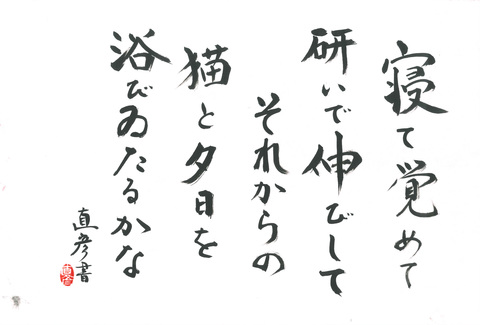 寝て覚めて
研いで伸びして
それからの
猫と夕日を
浴びゐたるかな
直彦書